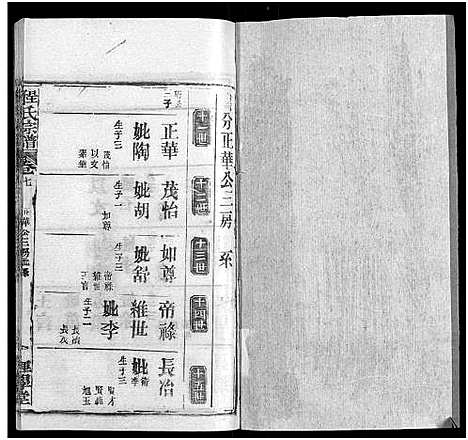 分正華公三房 系
十一世
十二世
十三世
十四世
十五世
二子
正華
妣陶
生子三
茂怡
以文
茂怡
妣胡
生子一
如尊
如尊
妣舒
生子三
帝祿
維世
帝祿
維世
妣李
生子二
長治
長發
長治
妣衛
生子三
賢才
賢義
旭玉
程氏宗譜
卷七
華公三房